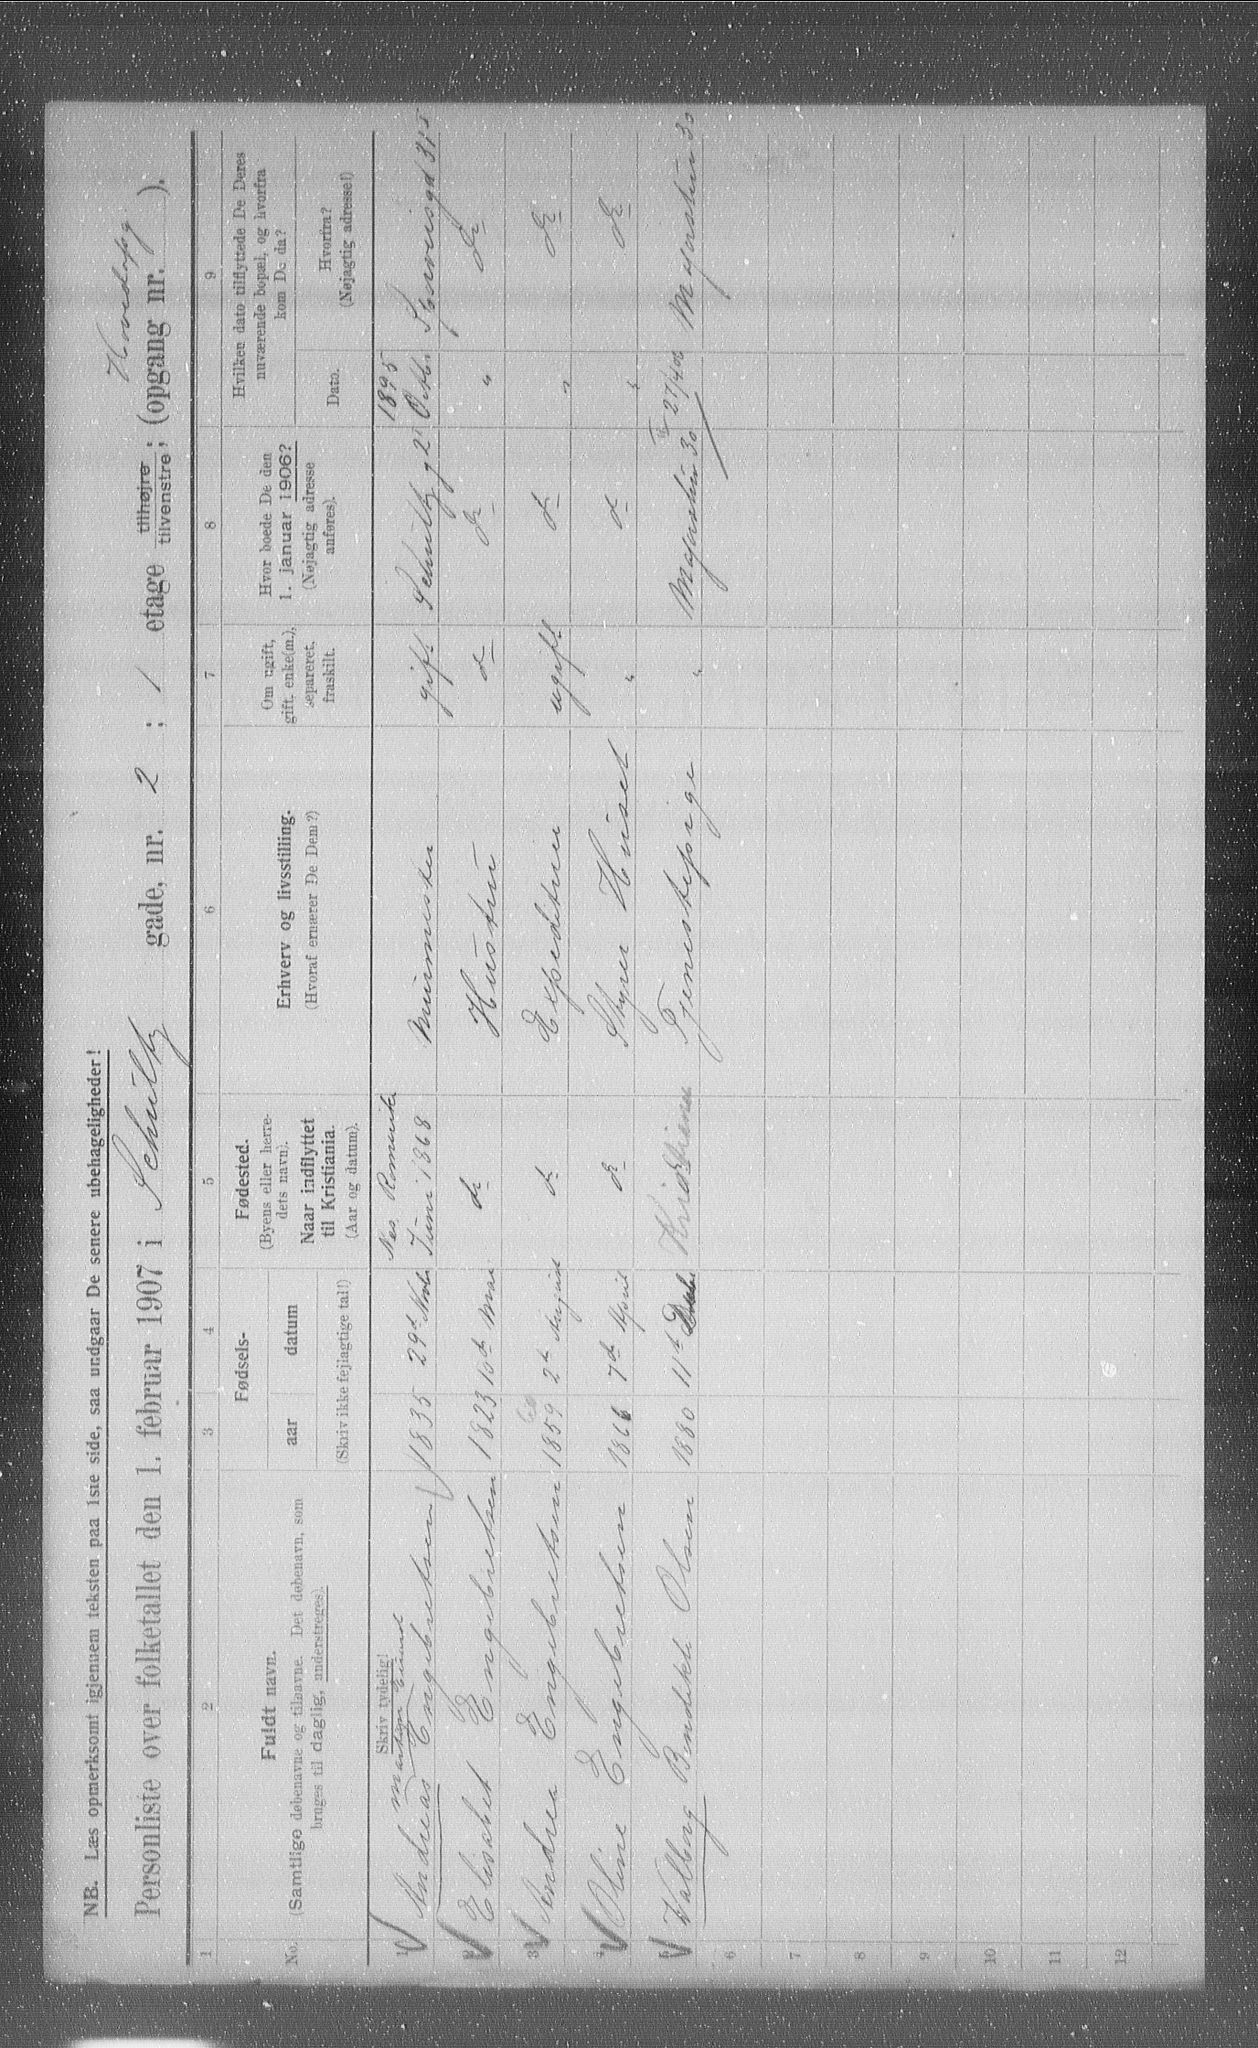 NB. Læs opmerksomt igjennem teksten paa 1ste side, saa undgaar De senere ubehageligheder!
Hovedopg
Personliste over folketallet den 1. februar 1907 i Schultz gade, nr. 2 ; 1 etage tilhøjre tilvenstre ; (opgang nr. ).
1 2 3 4 5 6 7 8 9
No.
Fuldt navn.
(Samtlige døbenavne og tilnavne. Det døbenavn, som
bruges til daglig, understreges).
Fødsels-
aar datum
(Skriv ikke fejlagtige tal!)
Fødested.
(Byens eller herre-
dets navn).
Naar indflyttet
til Kristiania.
(Aar og datum).
Erhverv og livsstilling.
(Hvoraf ernærer De Dem?)
Om ugift,
gift, enke(m.),
separeret,
fraskilt.
Hvor boede De den
1. januar 1906?
(Nøjagtig adresse
anføres).
Hvilken dato tilflyttede De Deres
nuværende bopæl, og hvorfra
kom De da?
Dato.
Hvorfra?
(Nøjagtig adresse!)
Skriv tydelig!
Nes Romerike 1895
1 Andreas Engebretsen 1835 29d Novbr Juni 1868 Murmester gift Schultz g 2 Octbr
2 Elisabet Engebretsen 1823 10de Mai do Hustru do do " do
3 Andrea Engebretsen 1859 2de August do Expeditrice ugift do " do
4 Oline Engebretsen 1866 7de April do Styrer Huset " do " do
5 Valborg Bendikte Olsen 1880 11te Kristiania Tjenestepige " 30 27/4 06 30
6
7
8
9
10
11
12